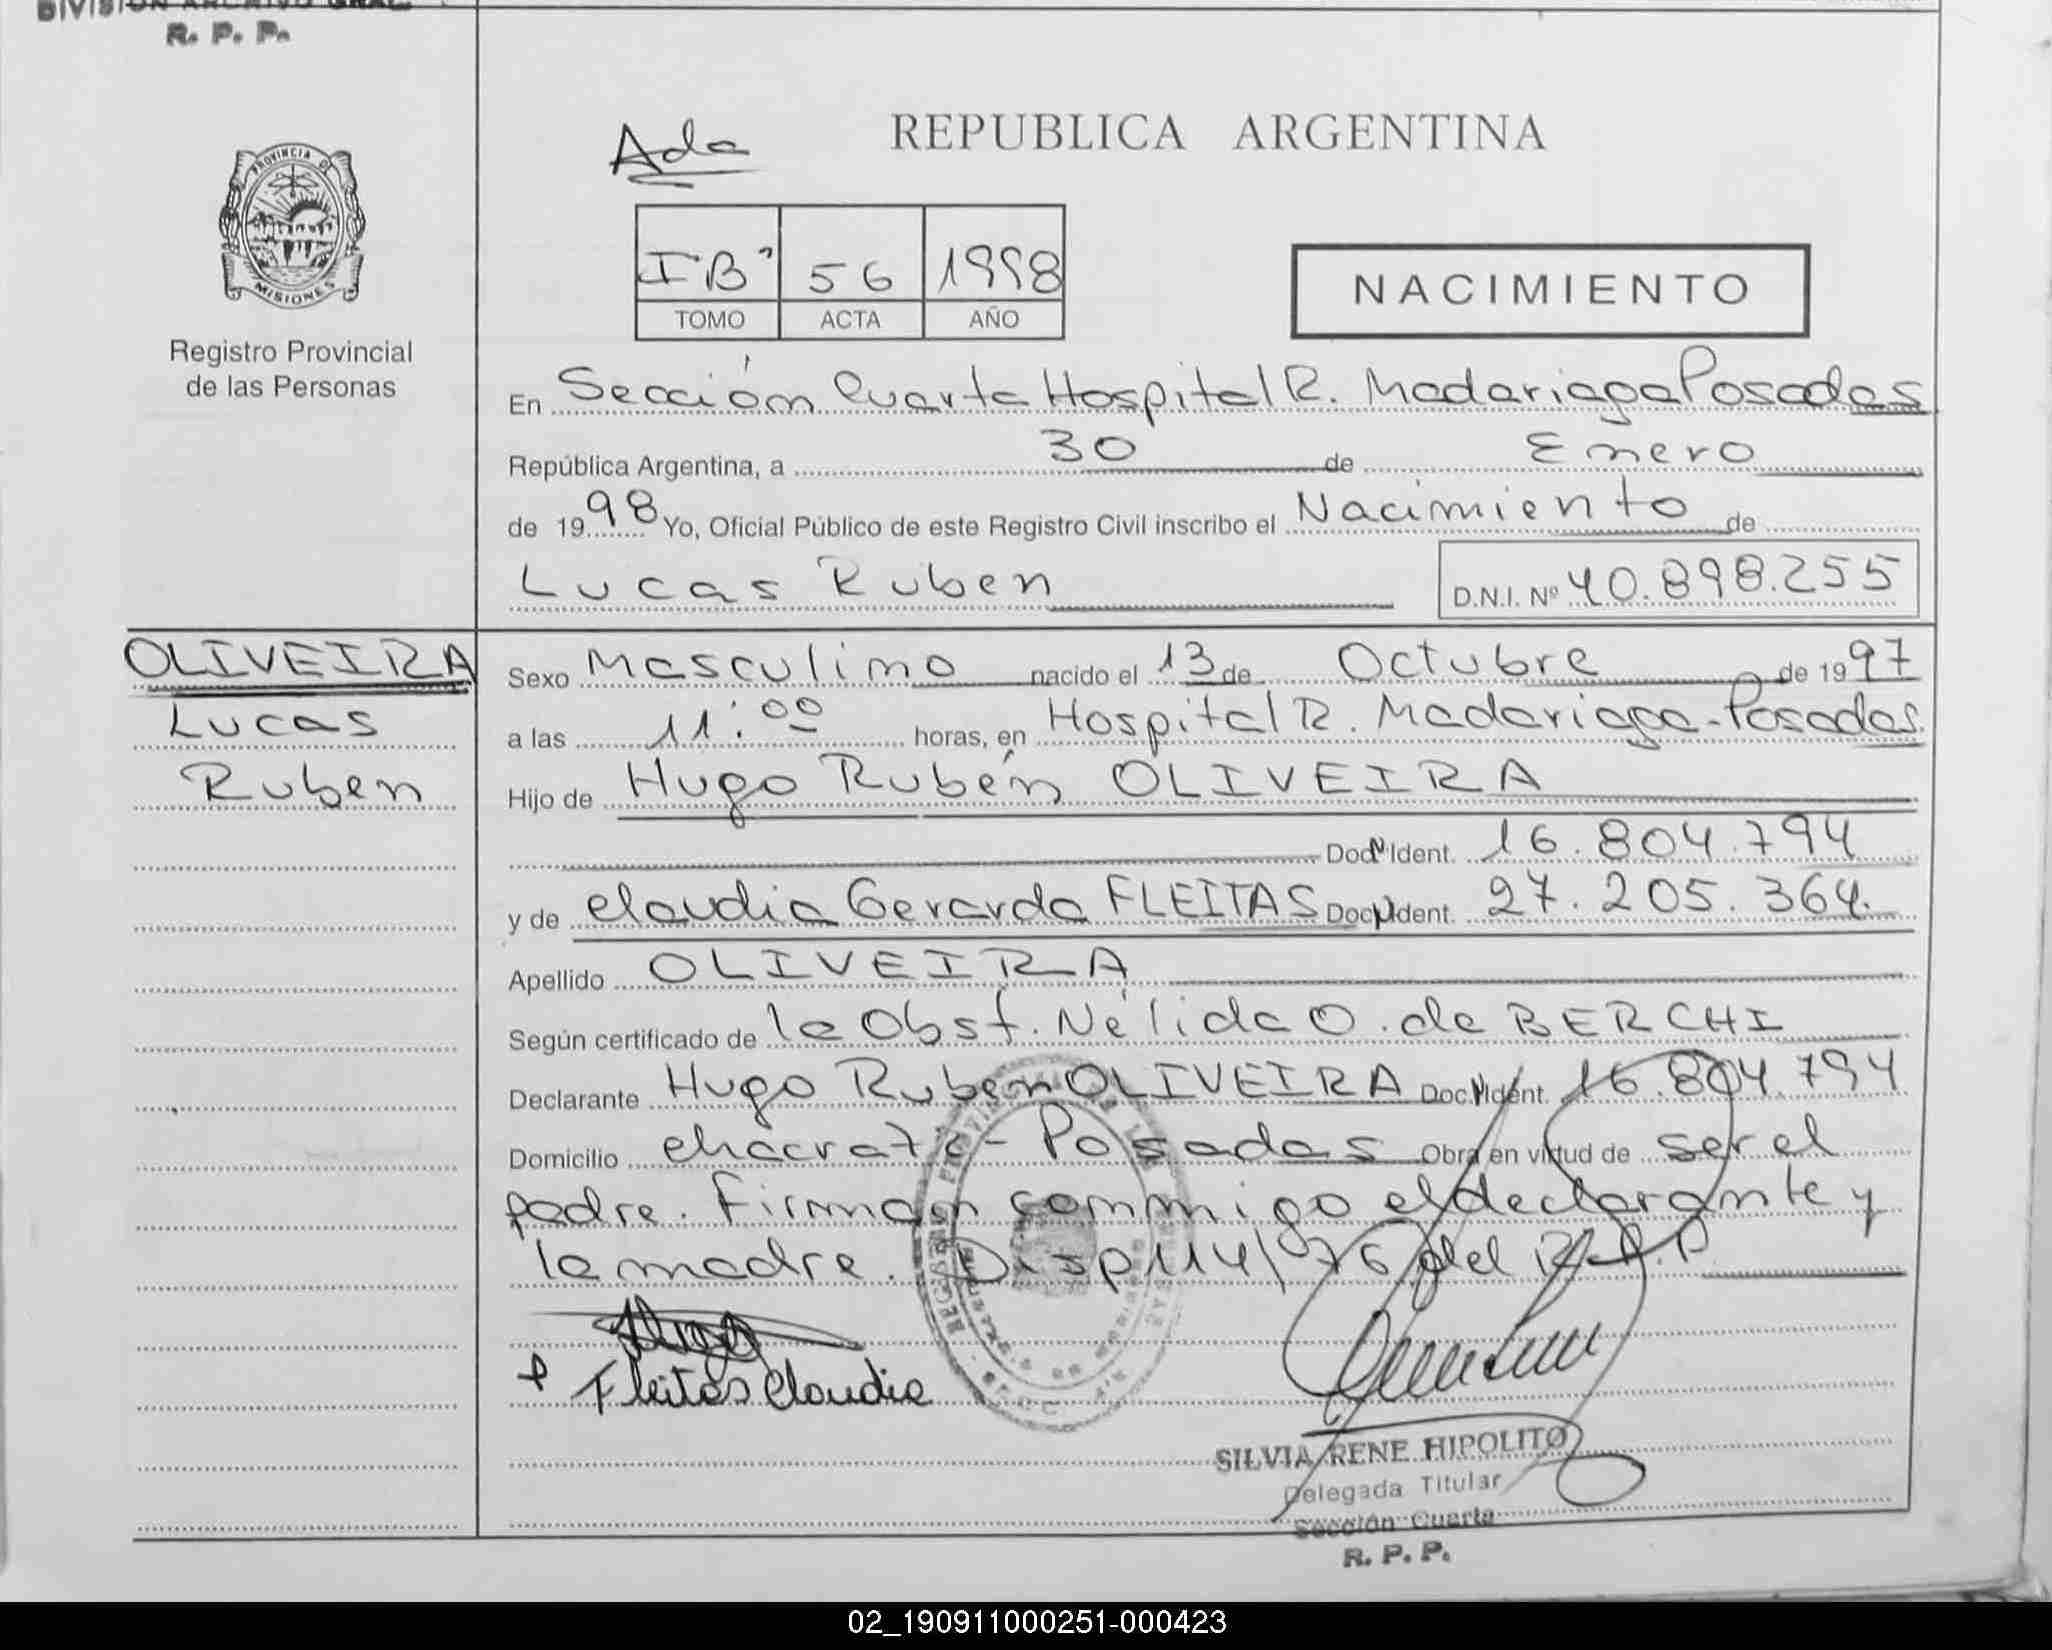 DIVISION ARCHIVO GRAL.
R. P. P.
PROVINCIA DE
MISIONES
Registro Provincial
de las Personas
Ada
REPUBLICA ARGENTINA
IBº 56 1998
TOMO ACTA AÑO
NACIMIENTO
En Sección Cuarta Hospital R. Madariaga Posadas
República Argentina, a 30 de Enero
de 1998 Yo, Oficial Público de este Registro Civil inscribo el Nacimiento de
Lucas Ruben D.N.I. Nº 40.898.255
OLIVEIRA
Lucas
Ruben
Sexo Masculino nacido el 13 de Octubre de 1997
a las 11:00 horas, en Hospital R. Madariaga - Posadas.
Hijo de Hugo Rubén OLIVEIRA
Doc N Ident. 16.804.794
y de Claudia Gerarda FLEITAS Doc N Ident. 27.205.364.
Apellido OLIVEIRA
Según certificado de la Obst. Nélida O. de BERCHI
Declarante Hugo Ruben OLIVEIRA Doc N Ident. 16.804.794
Domicilio Chacra 76 - Posadas Obra en virtud de ser el
padre. Firman conmigo el declarante y
la madre. Disp 114/76 del R.P.P.
Fleitas Claudia
SILVIA RENE HIPOLITO
Delegada Titular
Sección Cuarta
R. P. P.
02_190911000251-000423